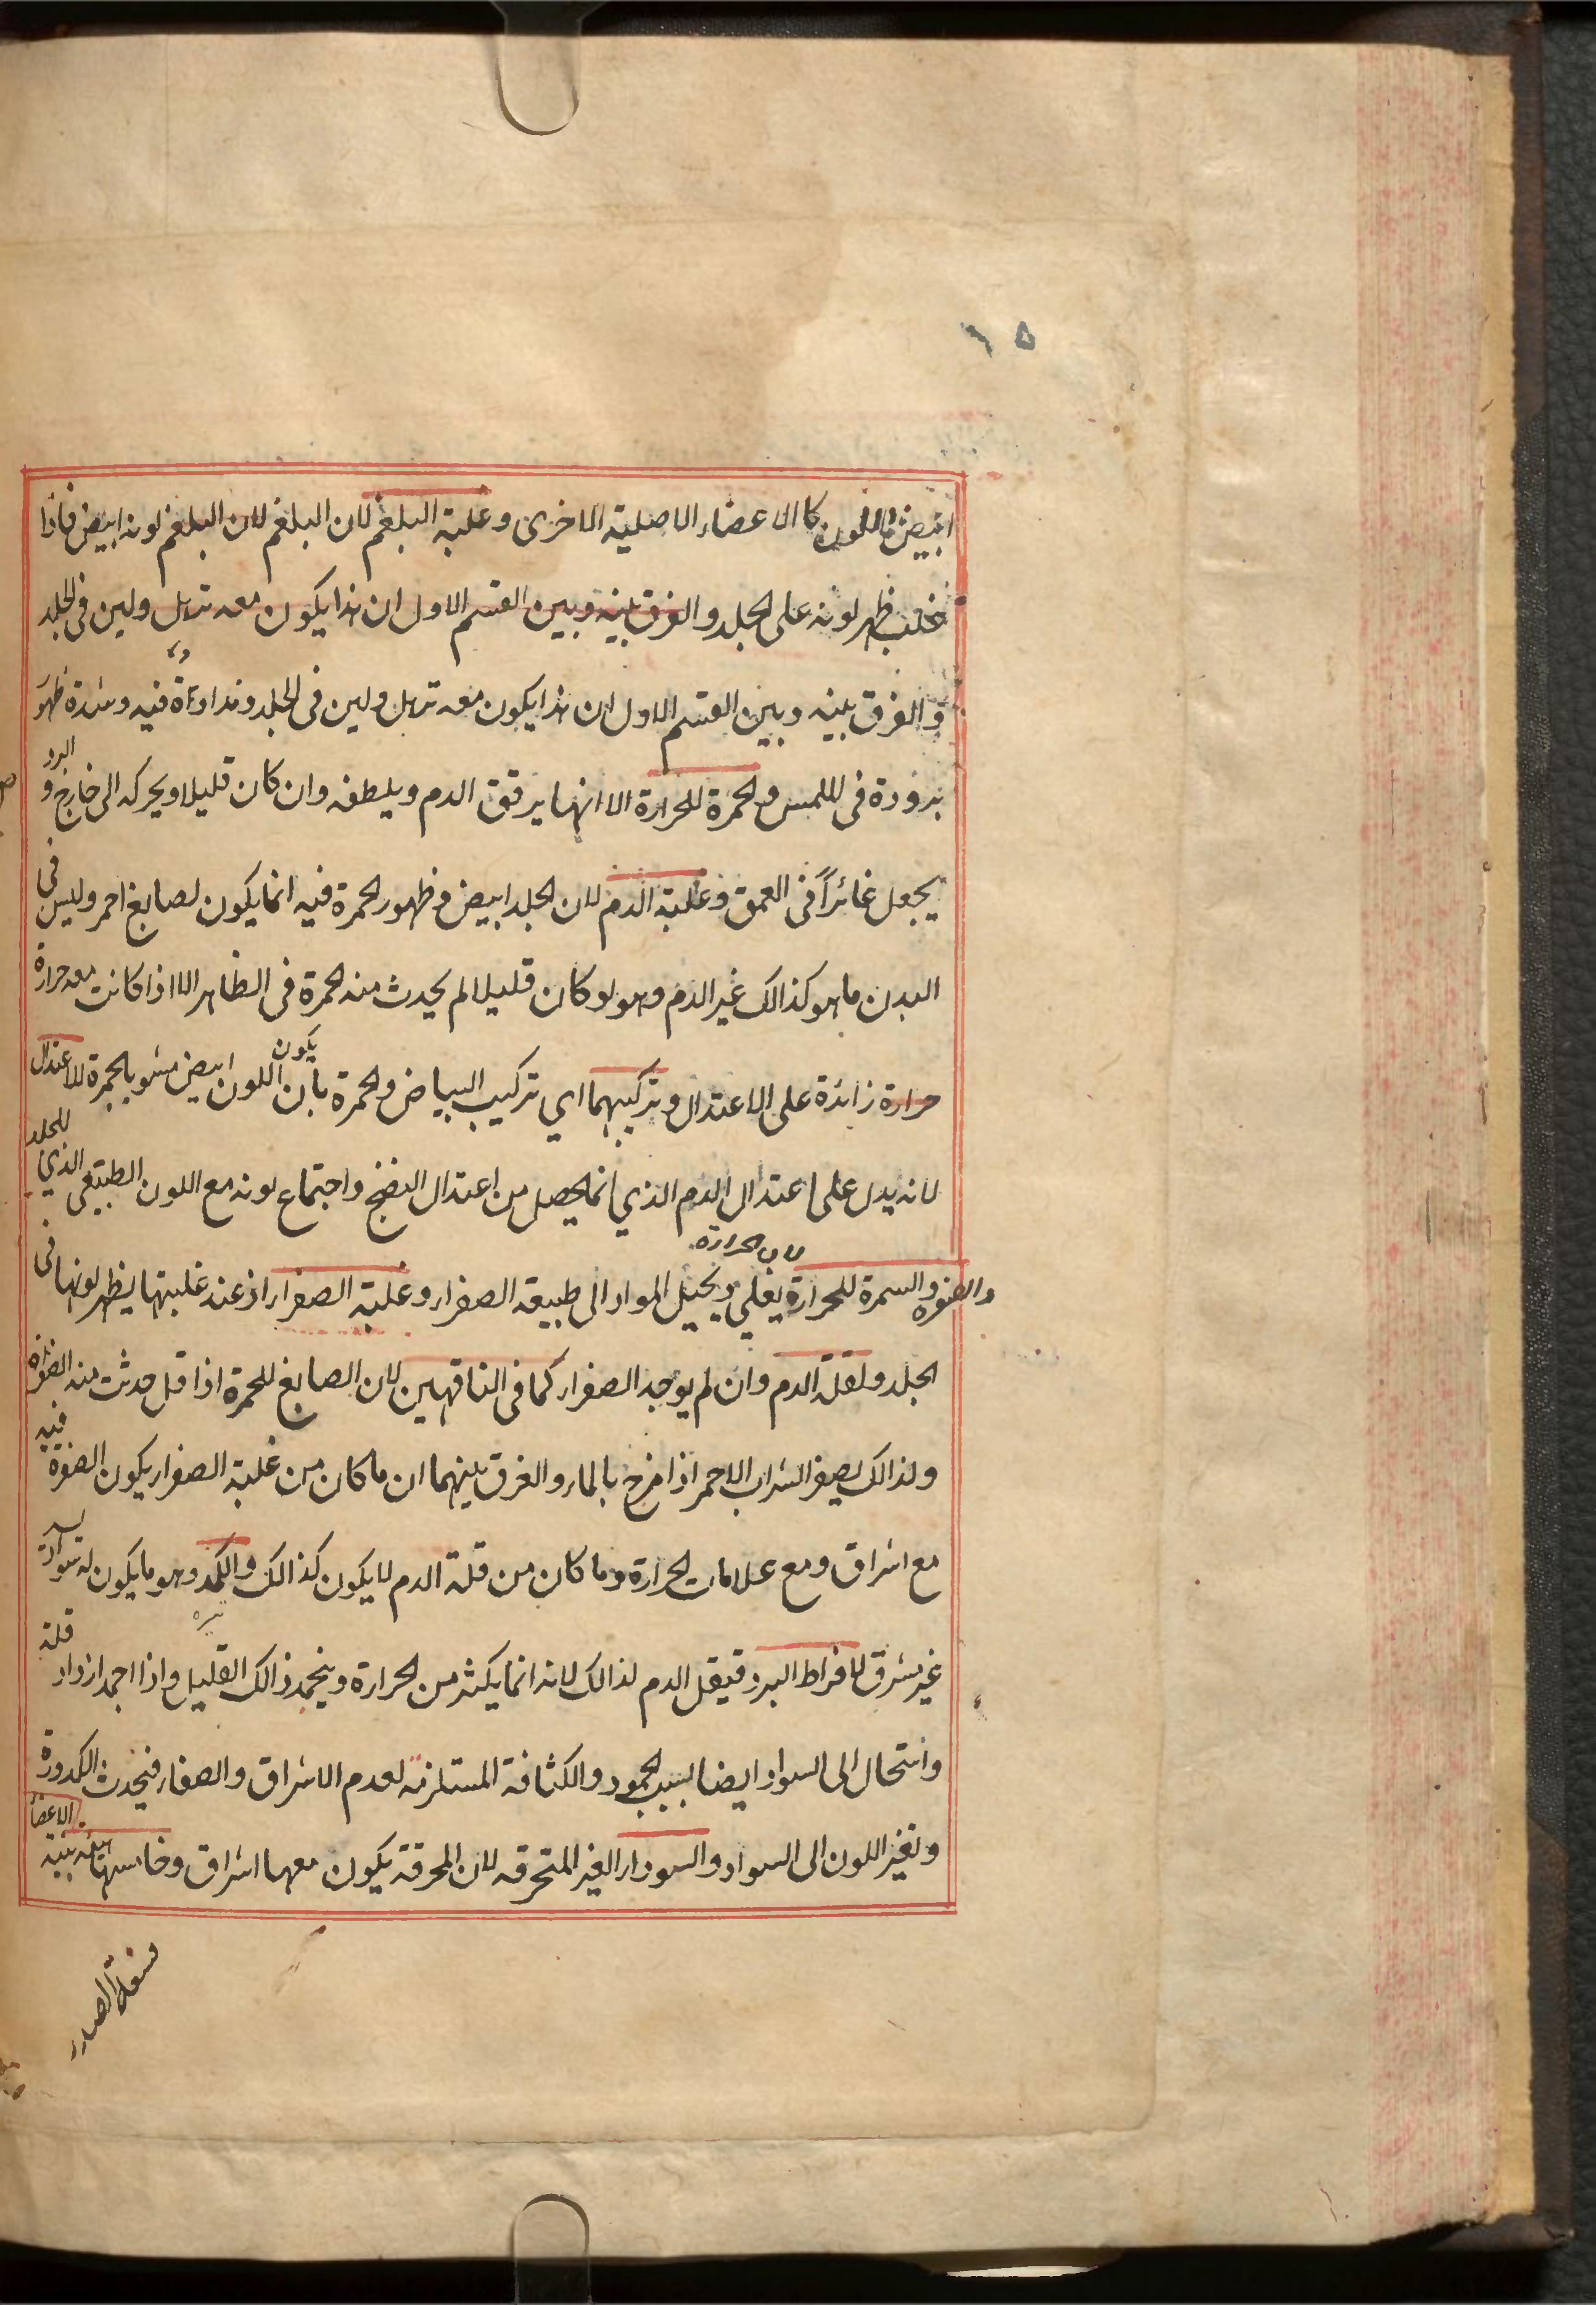 ١٥
ابيض اللون كالاعضاء الاصلية الاخرى وغلبة البلغم لان البلغم لان البلغم لونه ابيض فاذا
غلب ظهر لونه على الجلد والفرق بينه وبين القسم الاول ان هذا يكون معه ترهل ولين فى الجلد
والفرق بينه وبين القسم الاول ان هذا يكون معه ترهل ولين فى الجلد ونداوة فيه وشدة ظهور
برودة فى اللمس والحمرة للحرارة الا انها يرقق الدم ويلطفه وان كان قليلا ويحركه الى خارج و البرد
يجعل غائراً فى العمق وغلبة الدم لان الجلد ابيض وظهور الحمرة فيه انما يكون لصابغ احمر وليس فى
البدن ما هو كذالك غير الدم وهو لو كان قليلا لم يحدث منه الحمرة فى الظاهر الا اذا كانت معه حرارة
حرارة زائدة على الاعتدال وتركيبهما اي تركيب البياض والحمرة بأن يكون اللون ابيض مشوبا بحمرة للاعتدال
لانه يدل على اعتدال الدم الذي انما يحصل من اعتدال النضج واجتماع لونه مع اللون الطبيعى الذي للجلد
والصفرة والسمرة للحرارة لان الحرارة يغلي ويحيل المواد الى طبيعة الصفراء وغلبة الصفراء اذ عند غلبتها يظهر لونها فى
الجلد ولقلة الدم وان لم يوجد الصفراء كما فى الناقهين لان الصابغ للحمرة اذا قل حدثت منه الصفرة
ولذالك يصفر الشراب الاحمر اذا مزج بالماء والفرق بينهما ان ما كان من غلبة الصفراء يكون الصفرة فيه
مع اشراق ومع علامات الحرارة وما كان من قلة الدم لا يكون كذالك والكمد وهو ما يكون له سواد
غير مشرق لافراط البرد فيقل الدم لذالك لانه انما يكثر من الحرارة وينجمد ذالك القليل واذا اجمد ازداد قلة
واستحال الى السواد ايضا بسبب الجمود والكثافة المستلزمة لعدم الاشراق والصفاء فيحدث الكدورة
وتغير اللون الى السواد والسوداء الغير المتحرقه لان المحرقة يكون معها اشراق وخامسها هيئة الاعضاء